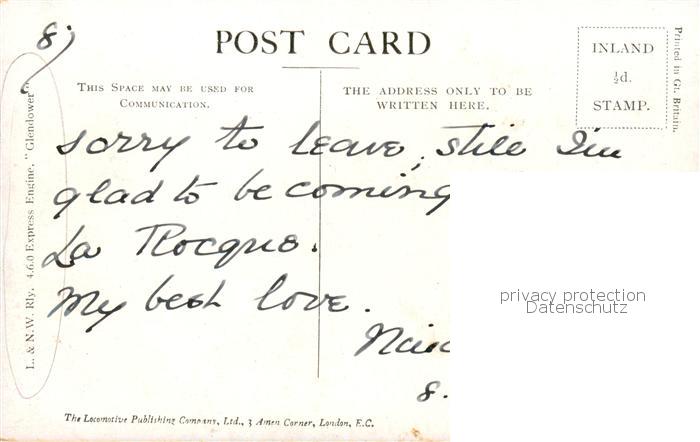 8)
POST CARD
THIS SPACE MAY BE USED FOR
COMMUNICATION.
THE ADDRESS ONLY TO BE
WRITTEN HERE.
INLAND
½d.
STAMP.
Printed in Gt. Britain.
L. & N.W. Rly. 4.6.0 Express Engine. "Glendower"
sorry to leave, still I'm
glad to be coming
La Rocque.
My best love.
8.
privacy protection
Datenschutz
The Locomotive Publishing Company, Ltd., 3 Amen Corner, London, E.C.